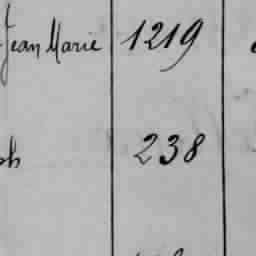 Jean Marie 1219
ph 238